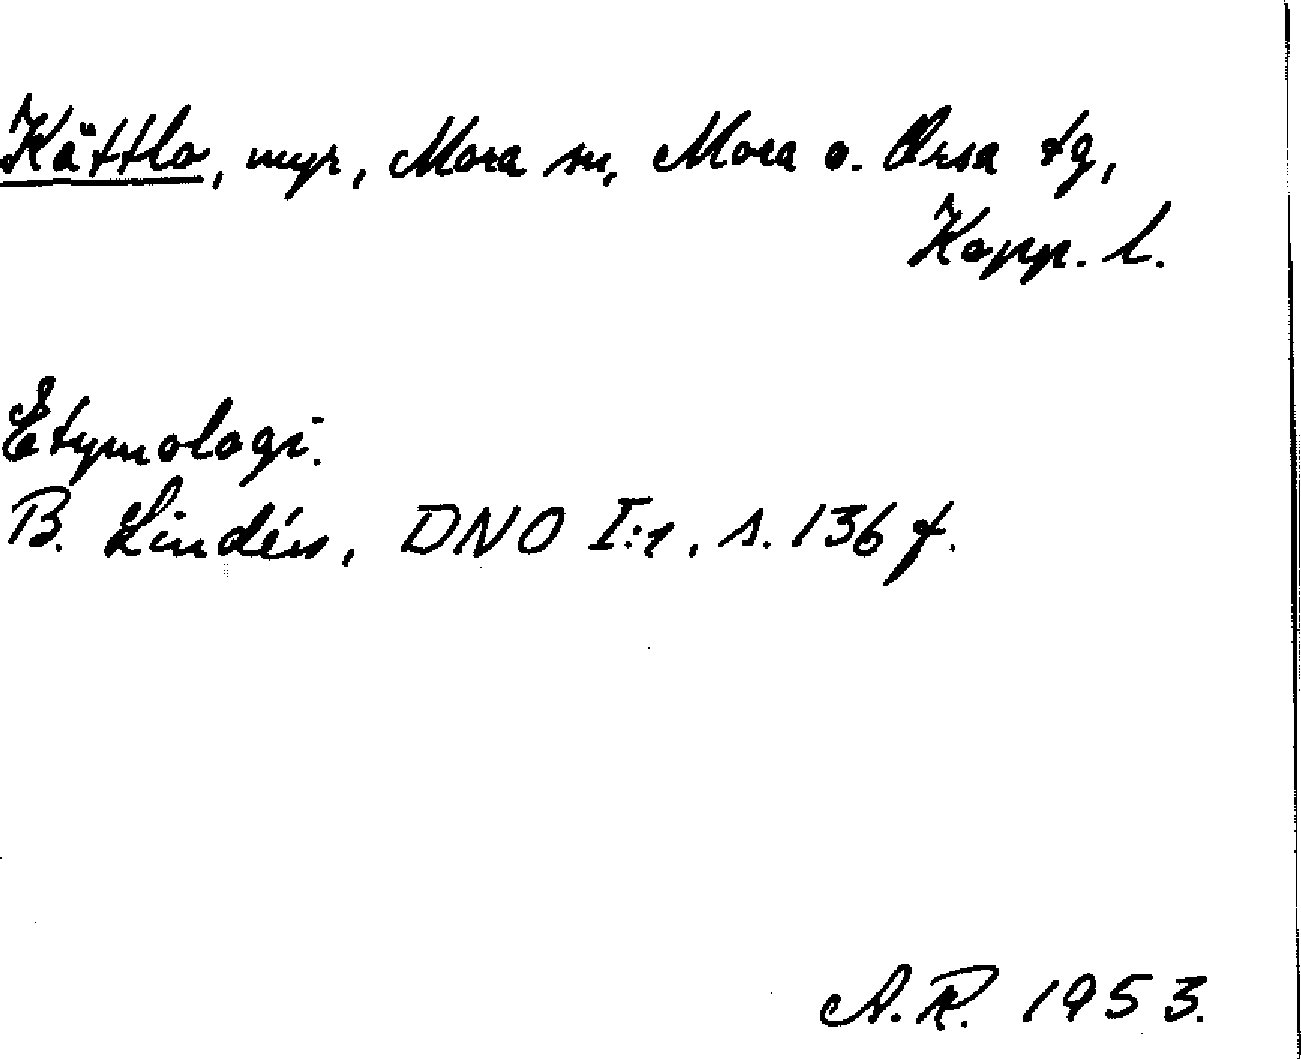 Kättbo, myr, Mora sn, Mora o. Orsa tg,
Kopp. l.
Etymologi.
B. Lindén, DNO I:1, s. 136 f.
A.R. 1953.